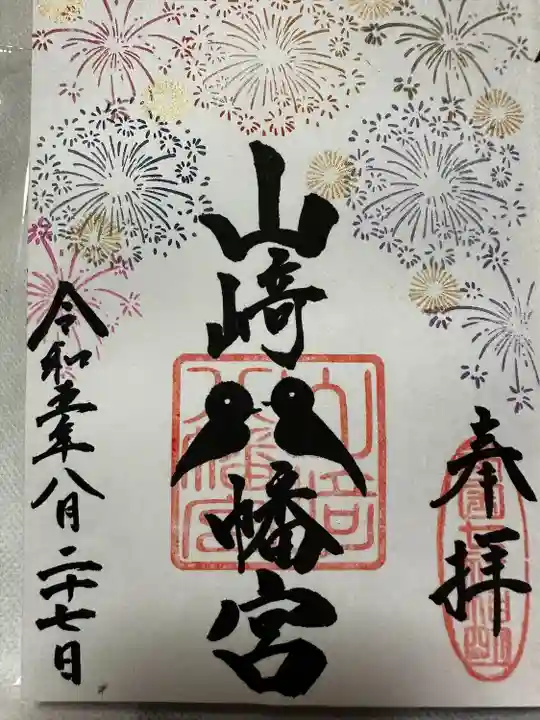 奉拝
山崎八幡宮
令和五年八月二十七日